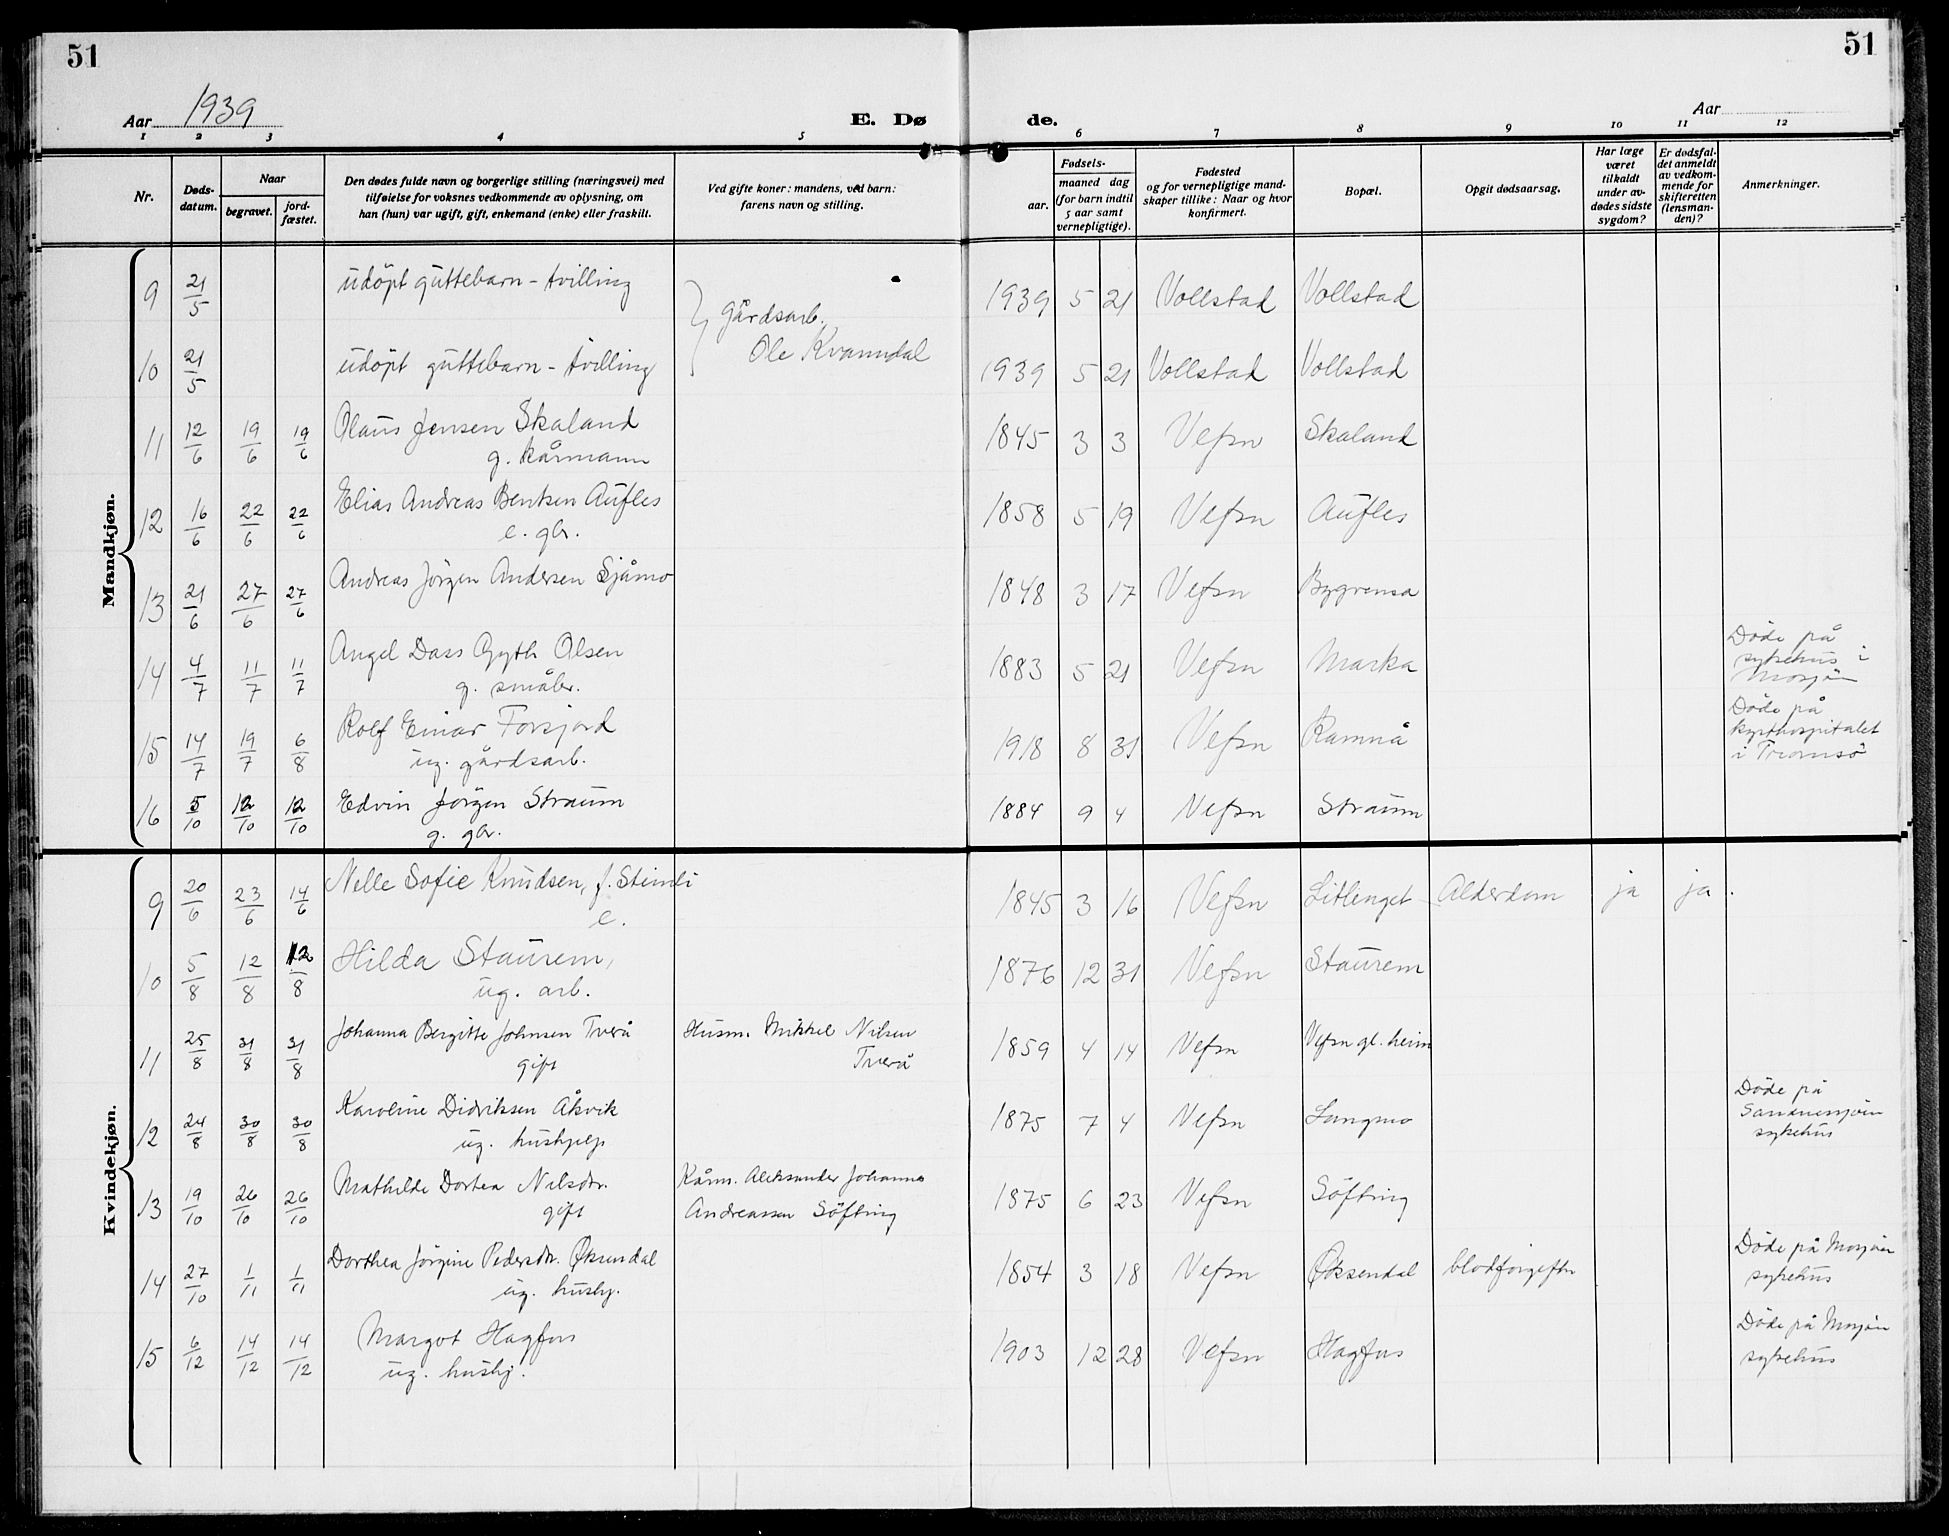 51
51
Aar 1939
E. Dø
de.
Aar
1 2 3 4 5 6 7 8 9 10 11 12
Nr.
Døds-
datum.
Naar
begravet.
jord-
fæstet.
Den dødes fulde navn og borgerlige stilling (næringsvei) med
tilføielse for voksnes vedkommende av oplysning, om
han (hun) var ugift, gift, enkemand (enke) eller fraskilt.
Ved gifte koner: mandens, ved barn:
farens navn og stilling.
Fødsels-
aar.
maaned dag
(for barn indtil
5 aar samt
vernepligtige).
Fødested
og for vernepligtige mand-
skaper tillike: Naar og hvor
konfirmert.
Bopæl.
Opgit dødsaarsag.
Har læge
været
tilkaldt
under av-
dødes sidste
sygdom?
Er dødsfal-
det anmeldt
av vedkom-
mende for
skifteretten
(lensman-
den)?
Anmerkninger.
Mandkjøn.
9 21/5 udöpt guttebarn - tvilling 1939 5 21 Vollstad Vollstad
Gårdsarb.
Ole Kvanndal
10 21/5 udöpt guttebarn - tvilling 1939 5 21 Vollstad Vollstad
11 12/6 19/6 19/6 Olaus Jensen Skaland 1845 3 3 Vefsn Skaland
g. kårmann
12 16/6 22/6 22/6 Elias Andreas Bentsen Aufles 1858 5 19 Vefsn Aufles
e. gbr.
13 21/6 27/6 27/6 Andreas Jörgen Andersen Sjåmo 1848 3 17 Vefsn Bygrensa
14 4/7 11/7 11/7 Angel Dass Gyth Olsen 1883 5 21 Vefsn Marka Döde på
g. småbr. sykehus i
Mosjöen
15 14/7 19/7 6/8 Rolf Einar Forsjord 1918 8 31 Vefsn Ramnå Döde på
ug. gårdsarb. kysthospitalet
i Tromsö
16 5/10 12/10 12/10 Edvin Jörgen Straum 1884 9 4 Vefsn Straum
g. gbr.
Kvindekjøn.
9 20/6 23/6 14/6 Nelle Sofie Knudsen, f. Stimli 1845 3 16 Vefsn Litlenget Alderdom ja ja
e.
10 5/8 12/8 12/8 Hilda Staurem, 1876 12 31 Vefsn Staurem
ug. arb.
11 25/8 31/8 31/8 Johanna Bergitte Johnsen Tverå Husm. Mikkel Nilsen 1859 4 14 Vefsn Vefsn gl. heim
gift Tverå
12 24/8 30/8 30/8 Karoline Didriksen Åkvik 1875 7 4 Vefsn Langmo Döde på
ug. hushjelp Sandnessjöen
sykehus
13 19/10 26/10 26/10 Mathilde Dortea Nilsdtr. Kårm. Aleksander Johannes 1875 6 23 Vefsn Söfting
gift Andreassen Söfting
14 27/10 1/11 1/11 Dorthea Jörgine Pedersdtr. Øksendal 1854 3 18 Vefsn Øksendal blodforgiftn Döde på Mosjöen
ug. hushj. sykehus
15 6/12 14/12 14/12 Margot Hagfors 1903 12 28 Vefsn Hagfors Döde på Mosjöen
ug. hushj. sykehus